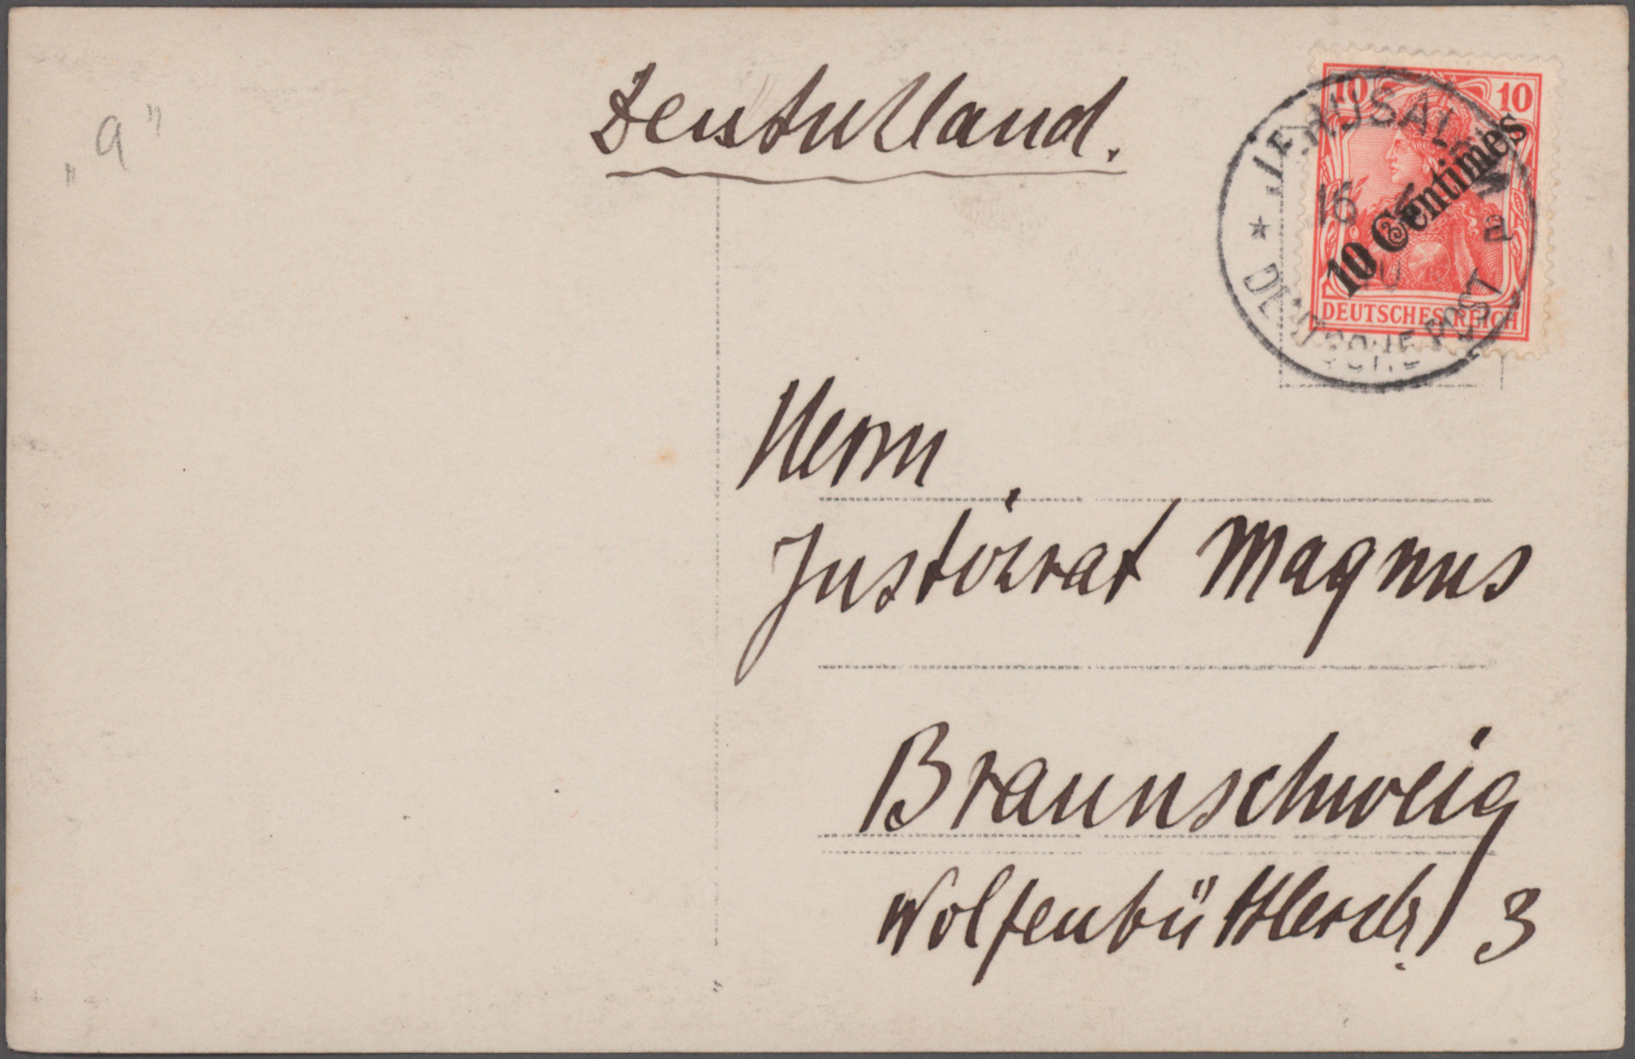 Deutschland.
„a"
10 10
10 Centimes
DEUTSCHES REICH
JERUSALEM
16
a
DEUTSCHE POST
Herrn
Justizrat Magnus
Braunschweig
Wolfenbüttlerstr 3